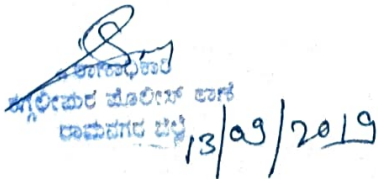 ಠಾಣಾಧಿಕಾರಿ
ಪೊಲೀಸ್ ಠಾಣೆ
ರಾಮನಗರ ಜಿಲ್ಲೆ
13/09/2019